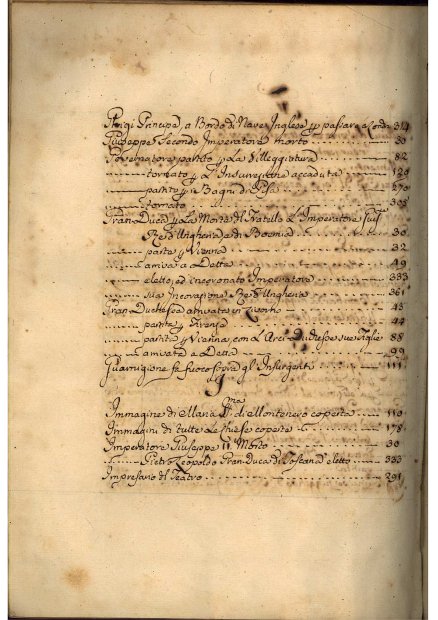 Principa, a Bordo di Nave Inglese p passare a Londr 314
Giuseppe Secondo Imperatore morto 30
Governatore partito p la Villeggiatura 82
tornato p l'Insurezione accaduta 128
partito p i Bagni di Pisa 270
tornato 305
Gran Duca p la Morte del Fratello l'Imperatore
Re d'Ungheria, e di Boemia 30
parte p Vienna 32
arriva a Detta 49
eletto, ed incoronato Imperatore 333
sua Incoronazione Re d'Ungheria 361
Gran Duchessa arrivata in Livorno 43
partita p Firenze 44
partita p Vienna, con l'Arciduchesse sue Figlie 88
arrivata a Detta 99
Guarnigione fa fuoco sopra gl'Insurgenti 111
Immagine di Maria SS.ma di Montenero coperta 110
Immagini di tutte le Chiese coperte 178
Imperatore Giuseppe II Morto 30
Pietro Leopoldo Gran Duca di Toscana eletto 333
Impresario del Teatro 291